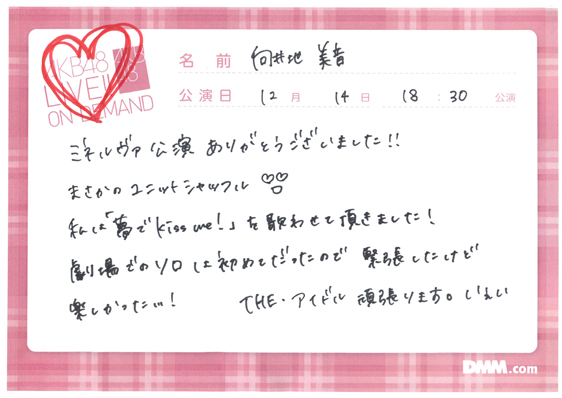 AKB48
LIVE!!
ON DEMAND
名前 向井地 美音
公演日 12月 14日 18:30 公演
ミネルヴァ公演 ありがとうございました!!
まさかのユニットシャッフル
私は「夢でKiss me!」を歌わせて頂きました!
劇場でのソロは初めてだったので 緊張したけど
楽しかったぃ! THE・アイドル 頑張ります。いえい
DMM.com